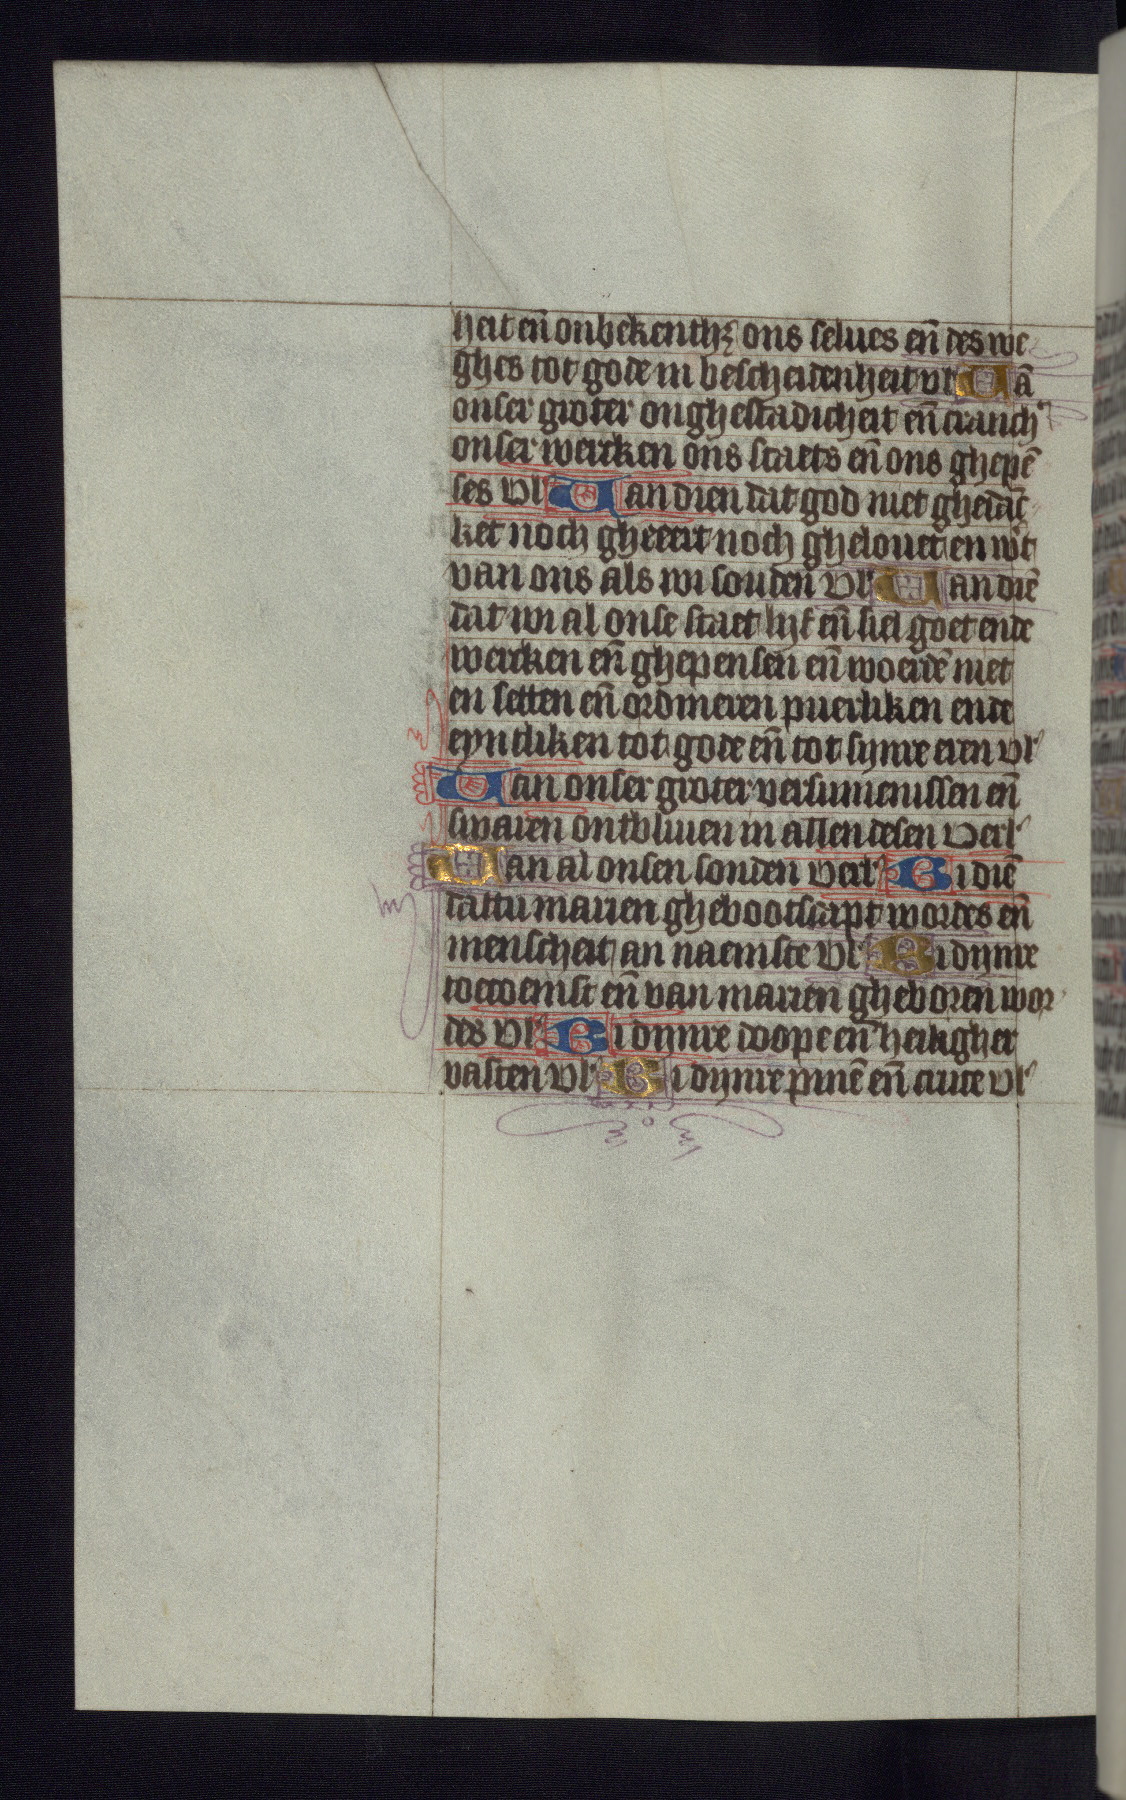 heit en̄ onbekenthꝫ ons selues en̄ des we
ghes tot gode in bescheidenheit vl' Uā
onser groter onghestadicheit en̄ cranch'
onser wercken ons staets en̄ ons ghepē
ses Vl' Uan dien dat god niet ghedāc
ket noch gheeert noch ghelouet en wͦt
van ons als wi souden Vl' Uan diē
dat wi al onse staet lijf en̄ siel goet ende
wercken en̄ ghepensen en̄ woerdē niet
en setten en̄ ordineren puerliken ende
eyntliken tot gode en̄ tot synre eren vl'
Uan onser groter versumenissen en̄
swaren ontbliuen in allen desen Verl'
Uan al onsen sonden verl' Bi diē
dattu marien ghebootscapt wordes en̄
menscheit an naemste Vl' Bi dynre
toecoemst en̄ van marien gheboren wor
des Vl' Bi dynre doope en̄ heiligher
vasten Vl' Bi dynre pinē en̄ cruce vl'